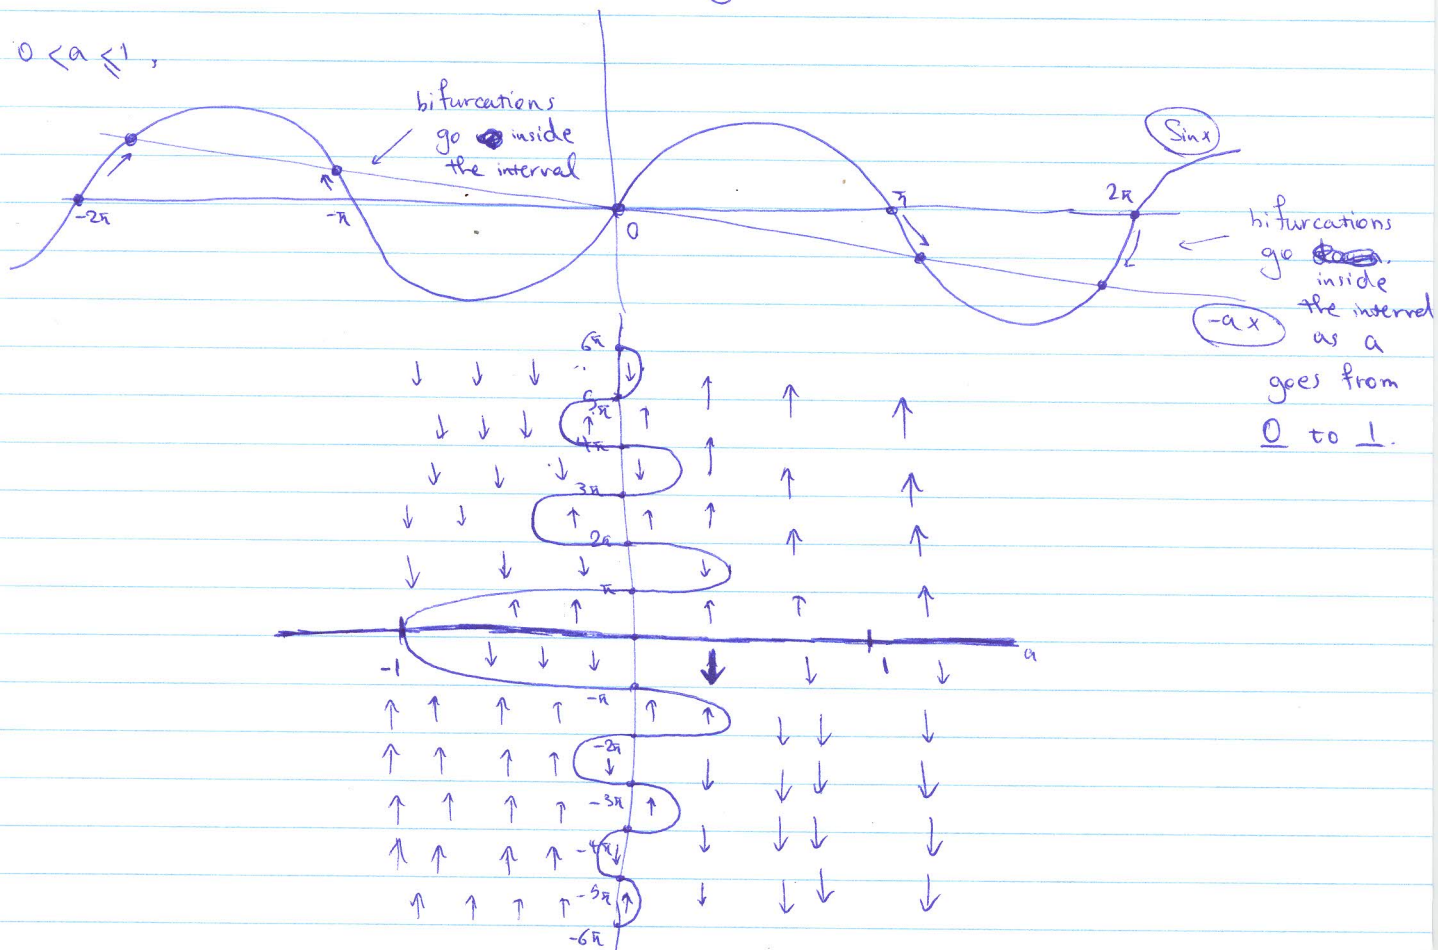 0 < a ≤ 1,
bifurcations
go inside
the interval
Sin x
-2π
-π
0
π
2π
bifurcations
go
inside
the interval
as a
goes from
0 to 1.
-ax
6π
5π
4π
3π
2π
π
-1
1
a
-π
-2π
-3π
-4π
-5π
-6π